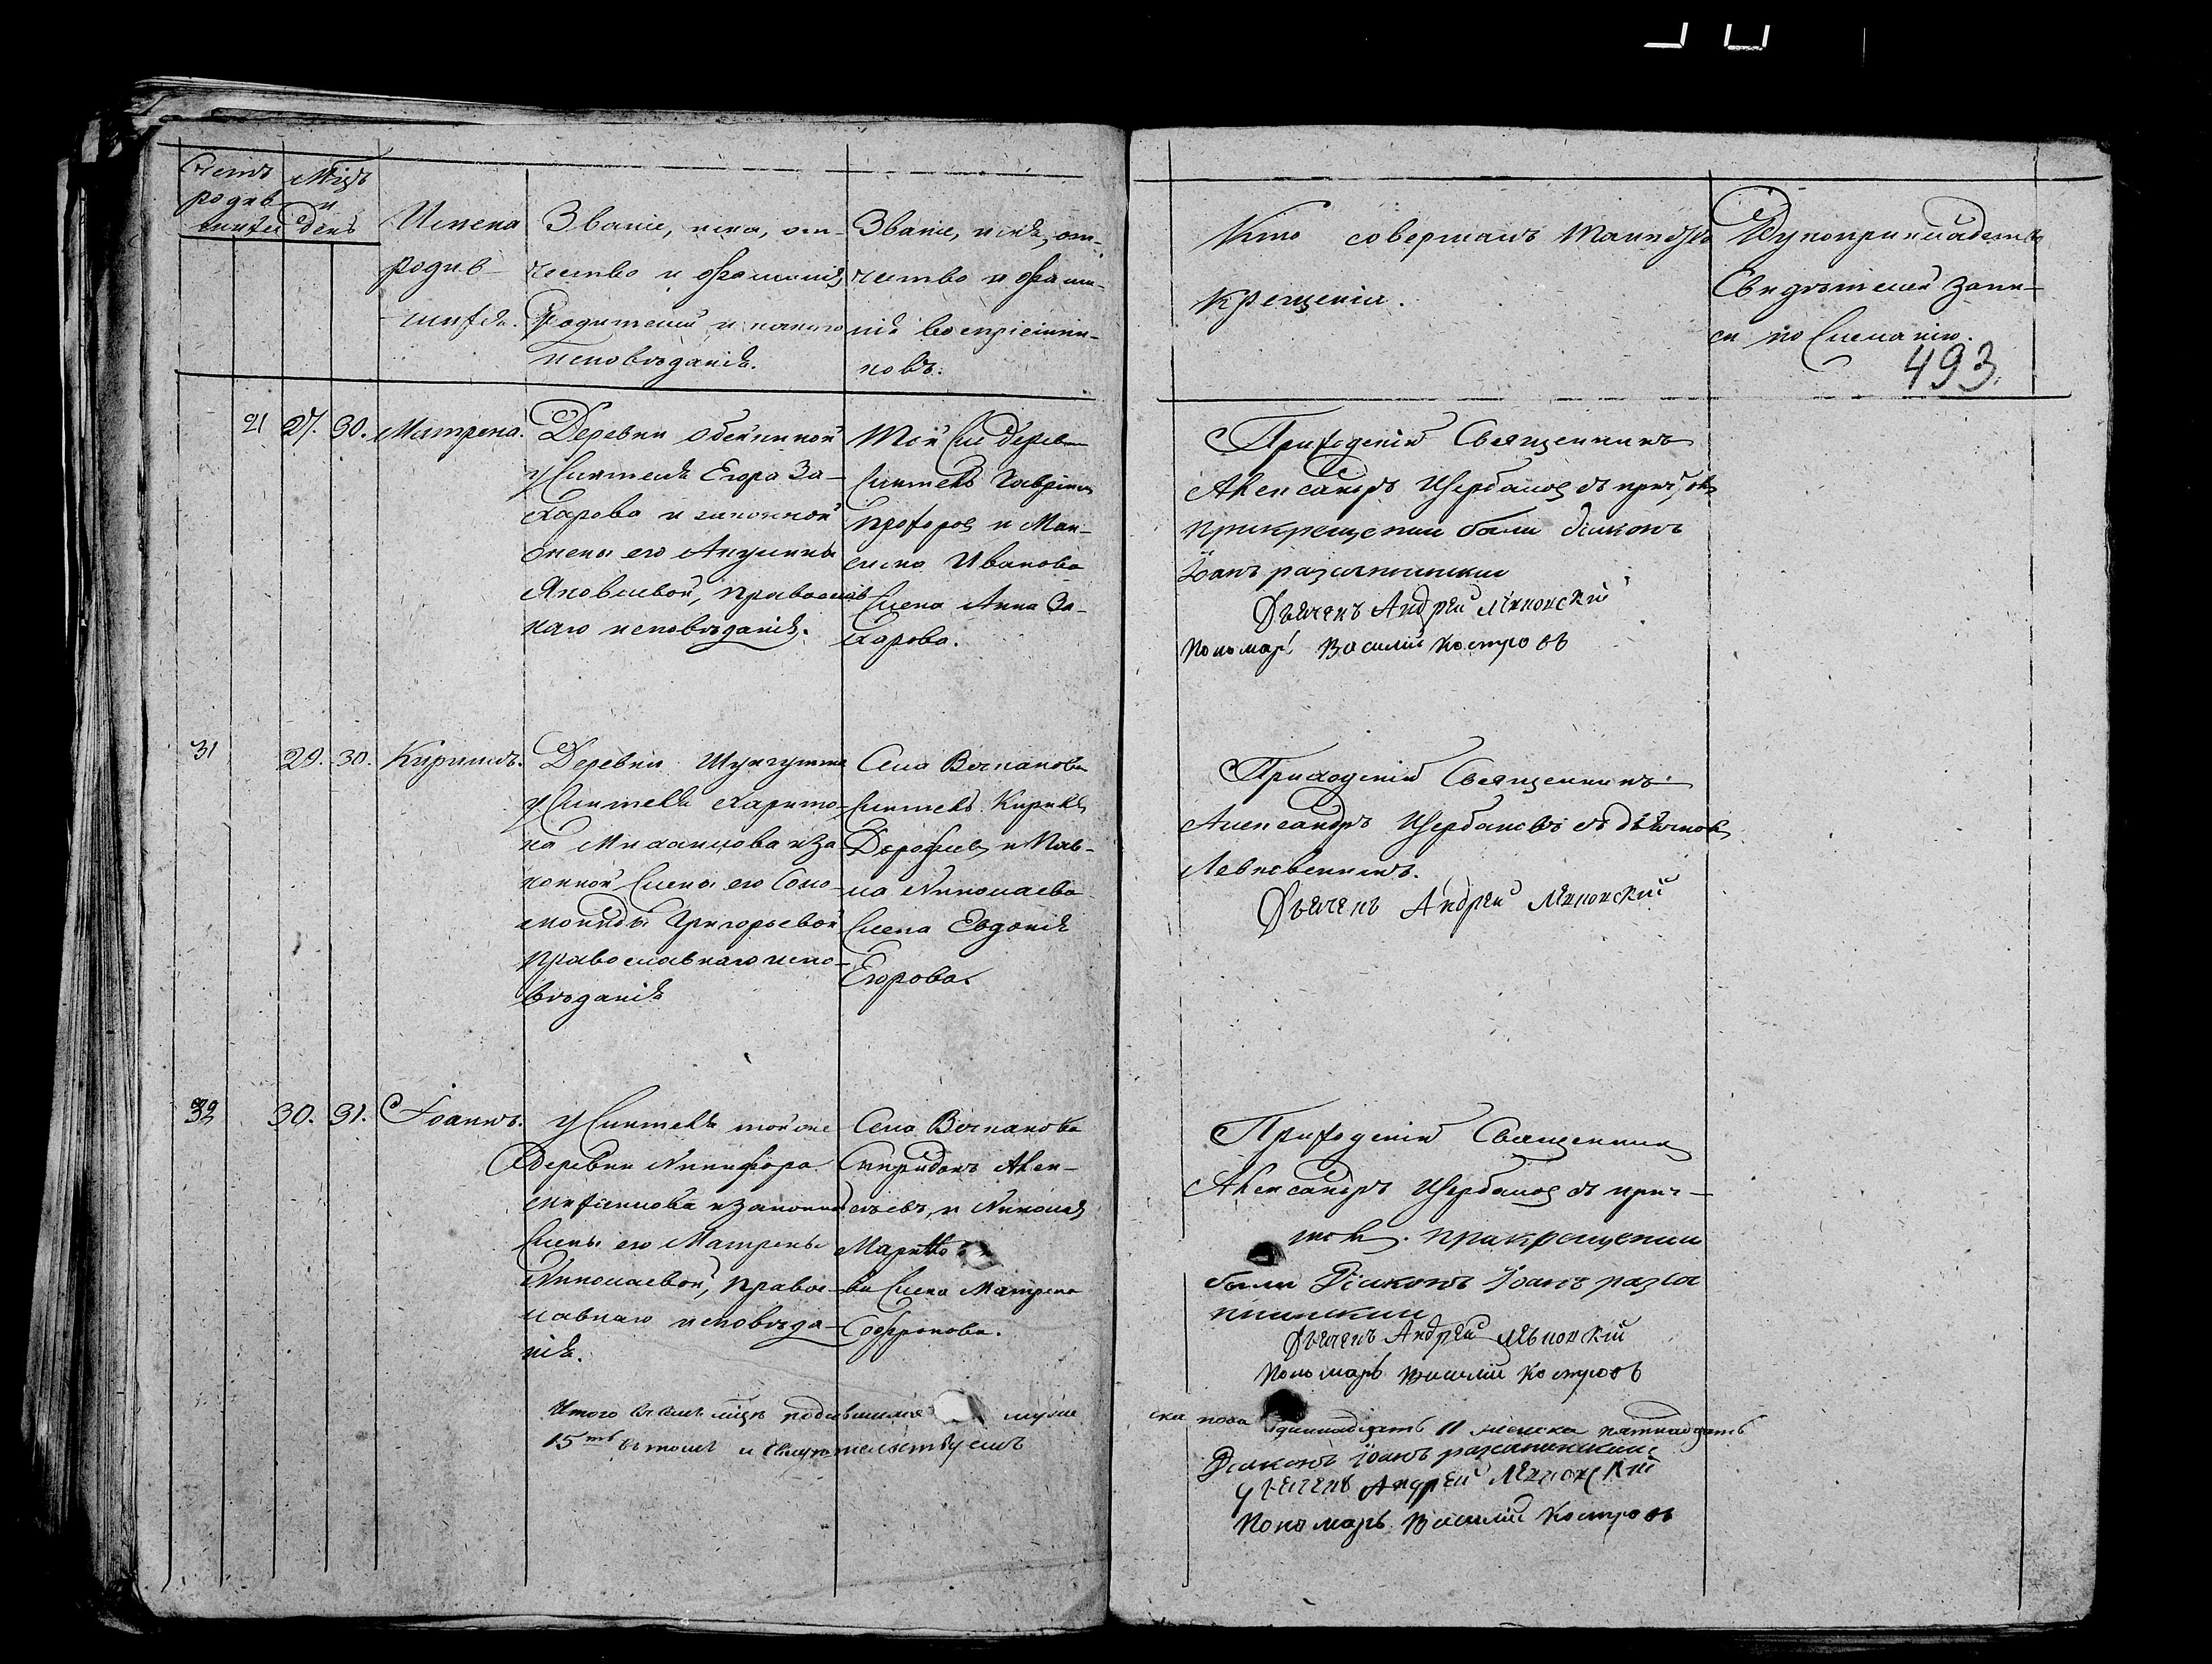 Счетъ родив шихся
Мцъ и день
Имена
родив
шихся.
Званіе, имя, от-
чество и фамилія
Родителей и какого
исповѣданія.
Званіе, имя, от-
чество и фами-
лія воспріемни-
ковъ.
Кто совершалъ Таинство
крещенія.
Рукоприкладство
Свидѣтелей запи-
си по желанію.
493.
21 27. 30. Матрена.
Деревни
у жителя Егора За-
харова и законной
жены его Акулины
Яковлевой, православ
наго исповѣданія.
Той же деревни
житель Гавріилъ
Прохоровъ и Мак-
сима Иванова
жена Анна За-
харова.
Приходскій Священникъ
Александръ Щербаковъ съ причтомъ
При крещеніи были діаконъ
Іоанъ
Дьячекъ Андрей
Пономарь Василій Костровъ
31 29. 30. Кириллъ.
Деревни
у жителя Харито-
на Михаилова и за
конной жены его Соло-
мониды Григорьевой
Православнаго испо-
вѣданія
Села
житель Кириллъ
Дорофеевъ и Пав-
ла Николаева
жена Евдокія
Егорова.
Приходскій Священникъ
Александръ Щербаковъ съ дьячкомъ
Дьячекъ Андрей
32 30. 31. Іоаннъ.
У жителя той же
деревни Никифора
Михаилова и законной
жены его Матрены
Николаевой, Правос-
лавнаго исповѣда-
нія.
Села
Спиридонъ Алек-
сѣевъ, и Николая
жена Матрена
Софронова.
Приходскій Священникъ
Александръ Щербаковъ съ прич-
томъ. При крещеніи
были Діаконъ Іоанъ
Дьячекъ Андрей
Пономарь Василій Костровъ
Итого въ семъ мцѣ родившихся муже
ска пола одиннадцать 11 женска пятнадцать
15ть въ томъ и свидѣтельствуемъ
Діаконъ Іоанъ
Дьячекъ Андрей
Пономарь Василій Костровъ